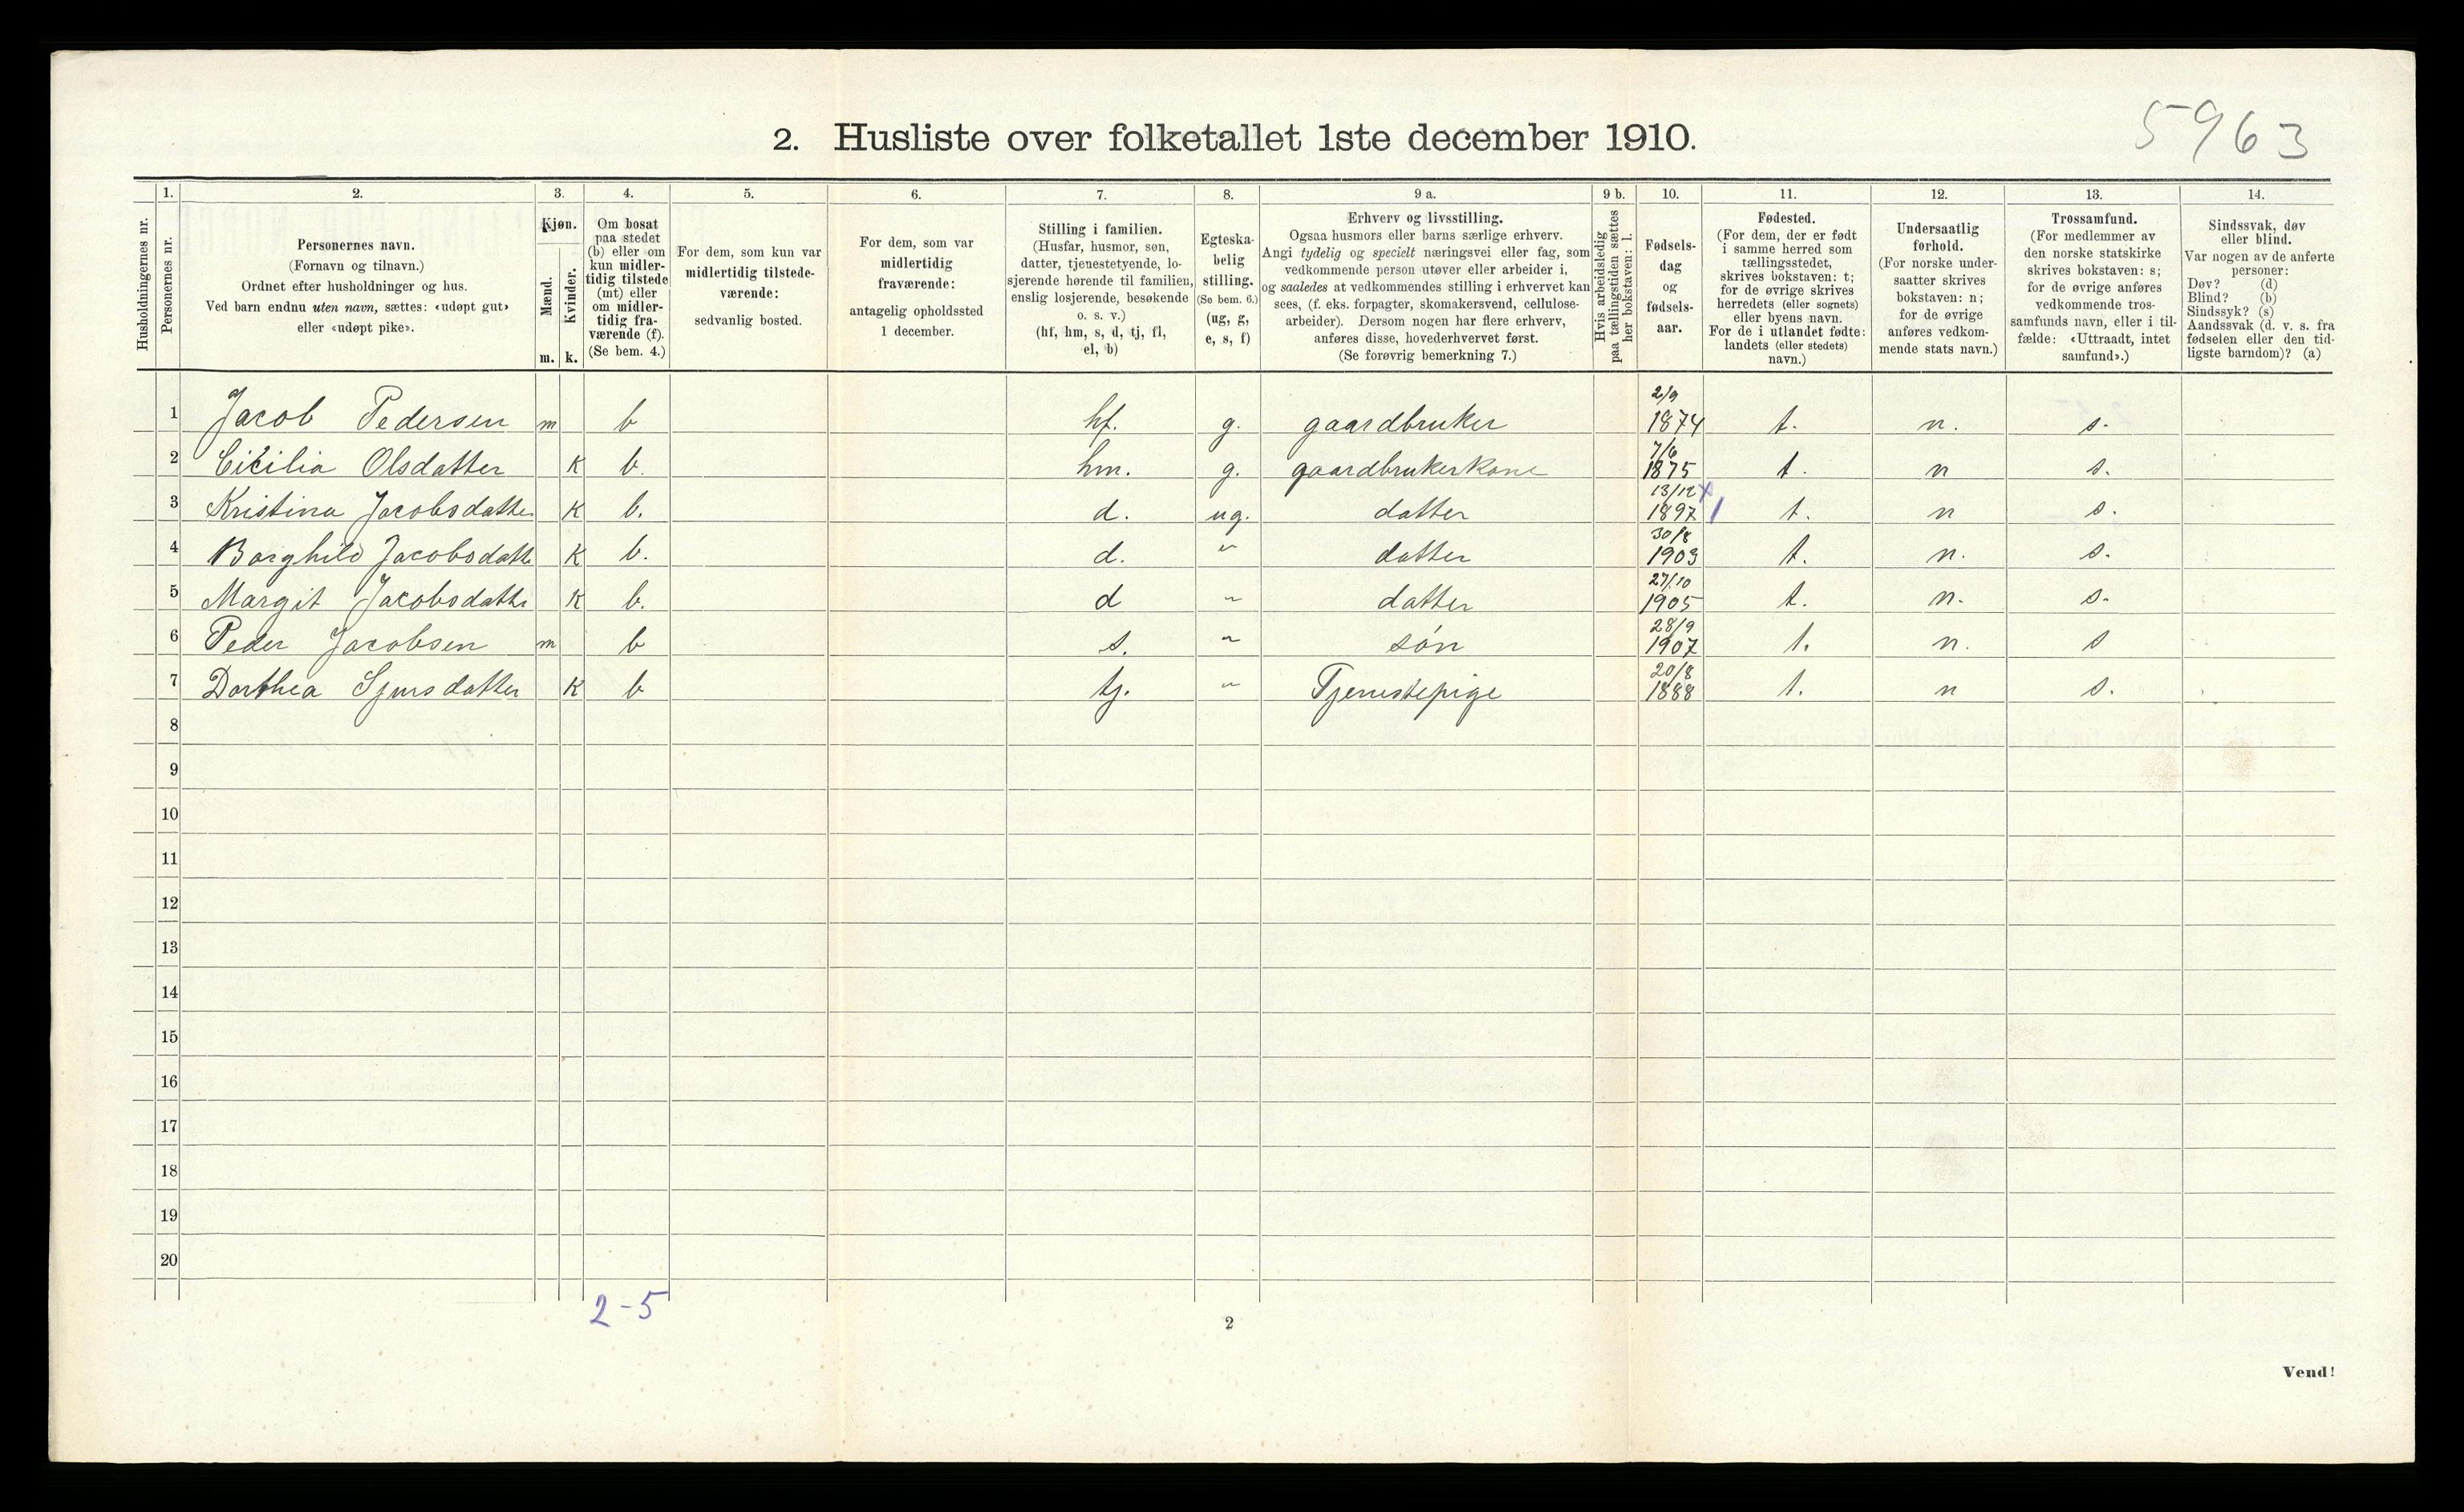 5963
2. Husliste over folketallet 1ste december 1910.
Husholdningernes nr.
1.
Personernes nr.
2.
Personernes navn.
(Fornavn og tilnavn.)
Ordnet efter husholdninger og hus.
Ved barn endnu uten navn, sættes: «udøpt gut»
eller «udøpt pike».
3.
Kjøn.
Mænd.
m.
Kvinder.
k.
4.
Om bosat
paa stedet
(b) eller om
kun midler-
tidig tilstede
(mt) eller
om midler-
tidig fra-
værende (f).
(Se bem. 4.)
5.
For dem, som kun var
midlertidig tilstede-
værende:
sedvanlig bosted.
6.
For dem, som var
midlertidig
fraværende:
antagelig opholdssted
1 december.
7.
Stilling i familien.
(Husfar, husmor, søn,
datter, tjenestetyende, lo-
sjerende hørende til familien,
enslig losjerende, besøkende
o. s. v.)
(hf, hm, s, d, tj, fl,
el, b)
8.
Egteska-
belig
stilling.
(Se bem. 6.)
(ug, g,
e, s, f)
9 a.
Erhverv og livsstilling.
Ogsaa husmors eller barns særlige erhverv.
Angi tydelig og specielt næringsvei eller fag, som
vedkommende person utøver eller arbeider i,
og saaledes at vedkommendes stilling i erhvervet kan
sees, (f. eks. forpagter, skomakersvend, cellulose-
arbeider). Dersom nogen har flere erhverv,
anføres disse, hovederhvervet først.
(Se forøvrig bemerkning 7.)
9 b.
Hvis arbeidsledig
paa tællingstiden sættes
her bokstaven: l.
10.
Fødsels-
dag
og
fødsels-
aar.
11.
Fødested.
(For dem, der er født
i samme herred som
tællingsstedet,
skrives bokstaven: t;
for de øvrige skrives
herredets (eller sognets)
eller byens navn.
For de i utlandet fødte:
landets (eller stedets)
navn.)
12.
Undersaatlig
forhold.
(For norske under-
saatter skrives
bokstaven: n;
for de øvrige
anføres vedkom-
mende stats navn.)
13.
Trossamfund.
(For medlemmer av
den norske statskirke
skrives bokstaven: s;
for de øvrige anføres
vedkommende tros-
samfunds navn, eller i til-
fælde: «Uttraadt, intet
samfund».)
14.
Sindssvak, døv
eller blind.
Var nogen av de anførte
personer:
Døv? (d)
Blind? (b)
Sindssyk? (s)
Aandssvak (d. v. s. fra
fødselen eller den tid-
ligste barndom)? (a)
1 Jacob Pedersen m b hf. g. gaardbruker 2/9 1874 t. n. s.
2 Cicilia Olsdatter K b. hm. g. gaardbrukerkone 7/6 1875 t. n s.
3 Kristina Jacobsdatter K b. d. ug. datter 13/12 1897 t. n s.
4 Borghild Jacobsdatt K b. d. " datter 30/8 1903 t. n. s.
5 Margit Jacobsdatte K b. d " datter 27/10 1905 t. n. s.
6 Peder Jacobsen m b s. " søn 28/9 1907 t. n. s
7 Dorthea Sjursdatter K b tj. " Tjenestepige 20/8 1888 t. n s.
8
9
10
11
12
13
14
15
16
17
18
19
20
2-5
2
Vend!